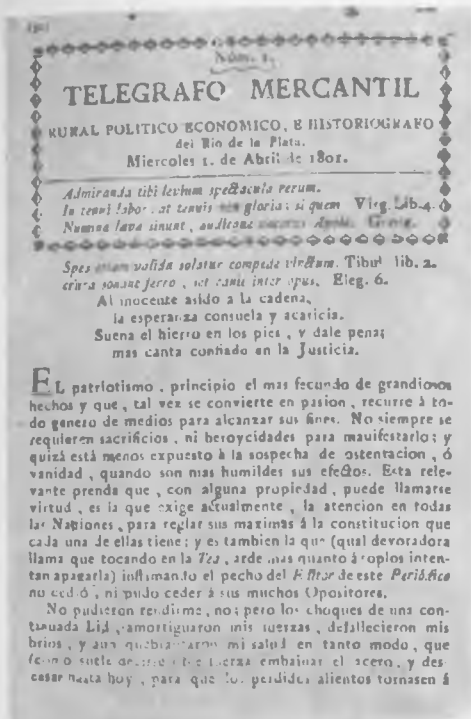 Núm. 1.
TELEGRAFO MERCANTIL
RURAL POLITICO ECONOMICO, E HISTORIOGRAFO
del Rio de la Plata.
Miercoles 1. de Abril de 1801.
Admiranda tibi levium spectacula rerum.
In tenui labor, at tenuis non gloria: si quem Virg. Lib. 4.
Numina læva sinunt, auditque vocatus Apolo. Georg.
Spes etiam valida solatur compede vinctum. Tibul lib. 2.
crura sonant ferro, set canit inter opus. Eleg. 6.
Al inocente asido a la cadena,
la esperanza consuela y acaricia.
Suena el hierro en los pies, y dale pena;
mas canta confiado en la Justicia.
EL patriotismo, principio el mas fecundo de grandiosos
hechos y que, tal vez se convierte en pasion, recurre á to-
do genero de medios para alcanzar sus fines. No siempre se
requieren sacrificios, ni heroycidades para manifestarlo; y
quizá está menos expuesto à la sospecha de ostentacion, ó
vanidad, quando son mas humildes sus efectos. Esta rele-
vante prenda que, con alguna propiedad, puede llamarse
virtud, es la que exige actualmente, la atencion en todas
las Naciones, para reglar sus maximas á la constitucion que
cada una de ellas tiene; y es tambien la que (qual devoradora
llama que tocando en la Tea, arde mas quanto à soplos inten-
tan apagarla) inflamando el pecho del Editor de este Periódico
no cedió, ni pudo ceder á sus muchos Opositores.
No pudieron rendirme, no; pero los choques de una con-
tinuada Lid, amortiguaron mis fuerzas, defallecieron mis
brios, y aun quebrantaron mi salud en tanto modo, que
(como suele decirse) fue fuerza embainar el acero, y des-
cesar hasta hoy, para que los perdidos alientos tornasen á